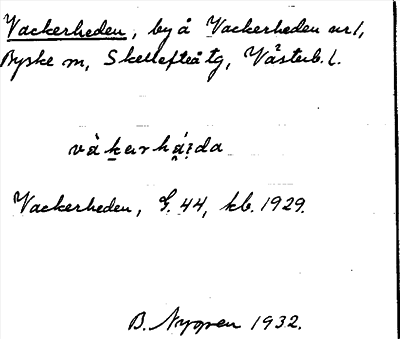 Vackerheden, by å Vackerheden nr 1,
Byske sn, Skellefteå tg, Västerb. l.
Vackerheden, G. 44, kb. 1929.
B. Nygren 1932.